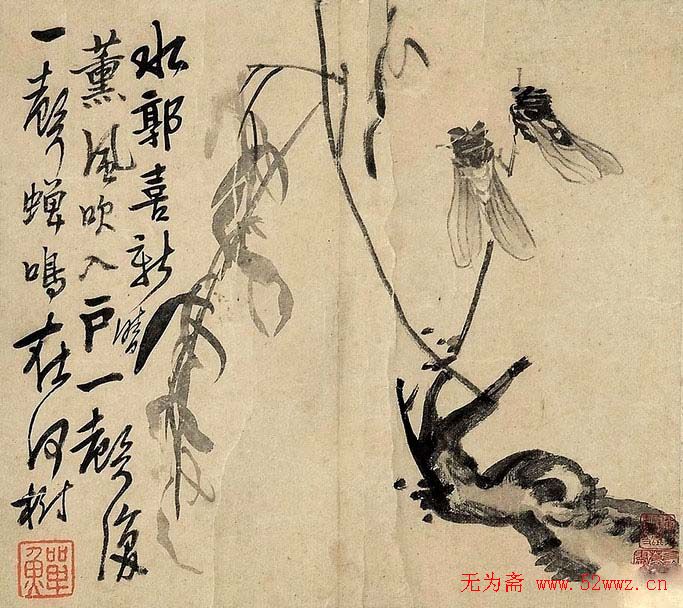 水郭喜新晴
薰風吹入戶一聲復
一聲蟬鳴在何樹
鱓
无为斋 www.52wwz.cn